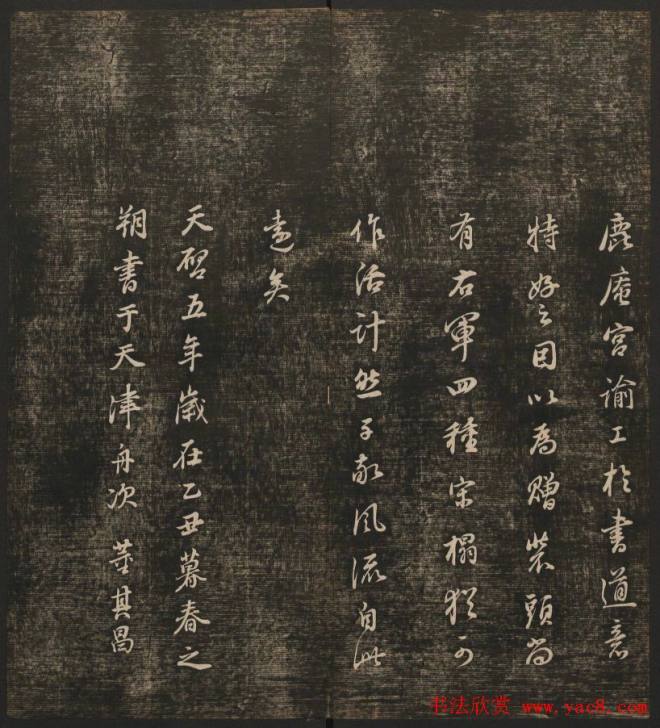 鹿庵宫谕工於書道意
特好之因以為贈裝頭尚
有右軍四種宋榻猶可
作活計然子敬風流自此
遠矣
天啓五年歲在乙丑暮春之
朔書于天津舟次 董其昌
书法欣赏 www.yac8.com